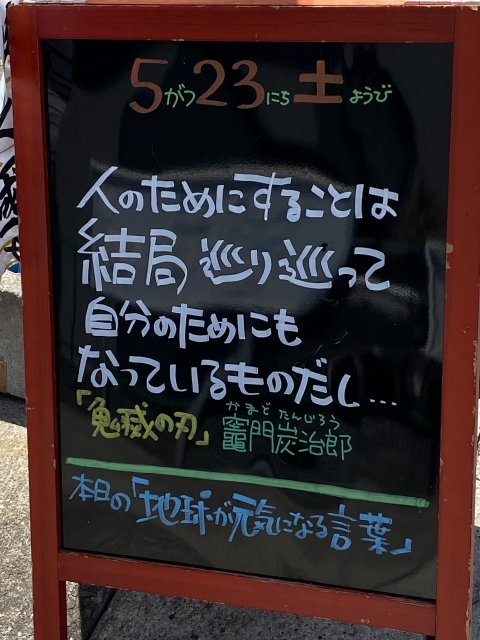 5がつ23にち土ようび
人のためにすることは
結局巡り巡って
自分のためにも
なっているものだし…
「鬼滅の刃」竈門炭治郎
かまど たんじろう
本日の「地球が元気になる言葉」